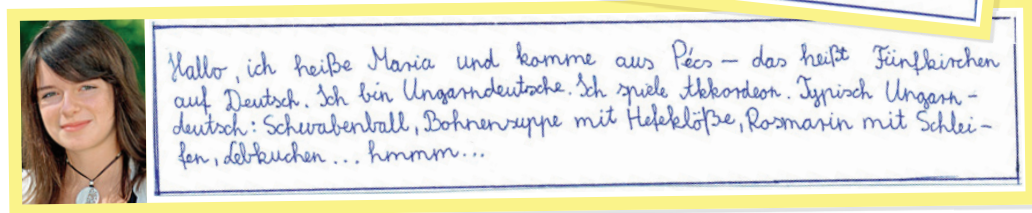 Hallo, ich heiße Maria und komme aus Pécs – das heißt Fünfkirchen
auf Deutsch. Ich bin Ungarndeutsche. Ich spiele Akkordeon. Typisch Ungarn-
deutsch: Schwabenball, Bohnensuppe mit Hefeklöße, Rosmarin mit Schlei-
fen, Lebkuchen ... hmmm...